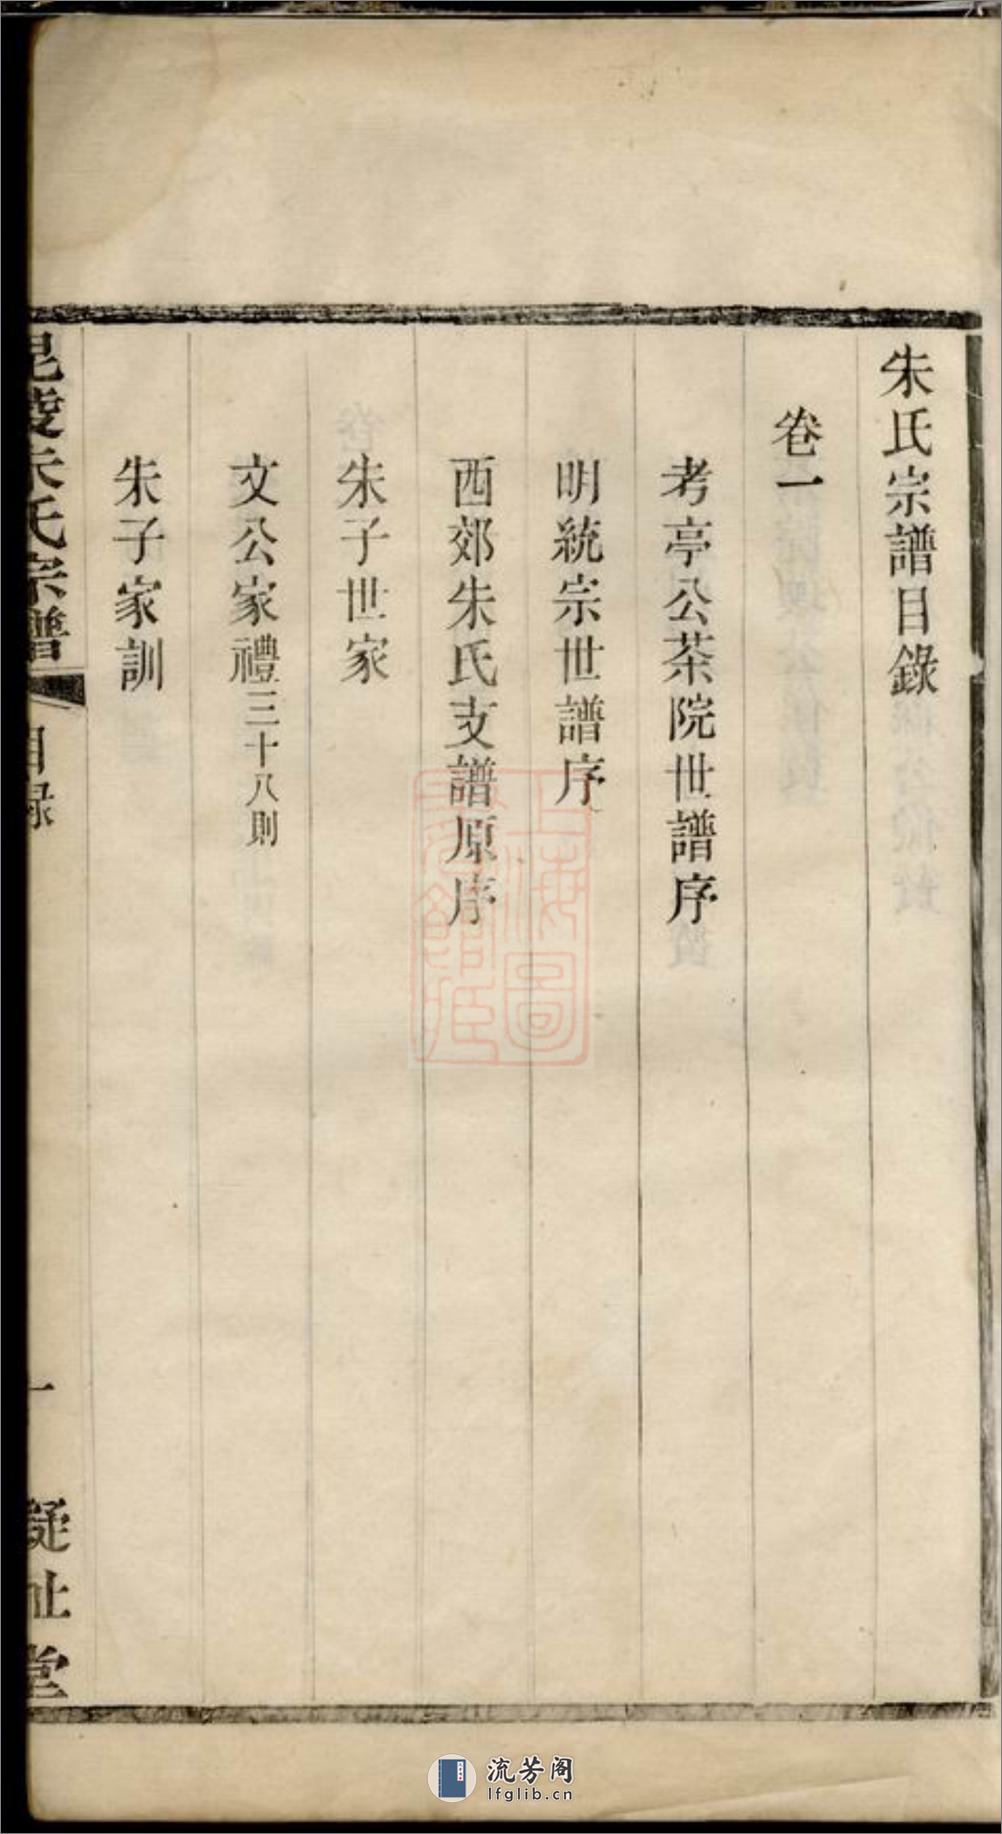 朱氏宗譜目錄
卷一
考亭公茶院世譜序
明統宗世譜序
西郊朱氏支譜原序
朱子世家
文公家禮三十八則
朱子家訓
毘陵朱氏宗譜
目錄
一
凝祉堂
上海圖
書館藏
流芳阁
lfglib.cn